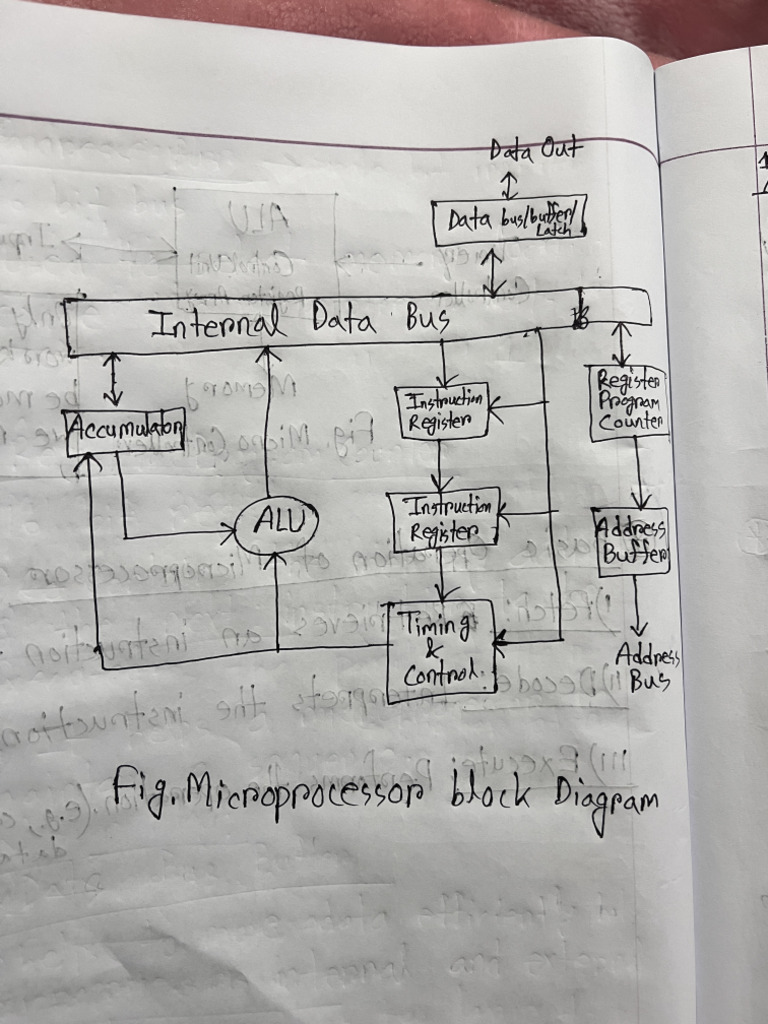 Data Out
Data bus/buffer/
Latch
Internal Data Bus
Accumulator
Instruction
Register
Register
Program
Counter
ALU
Instruction
Register
Address
Buffer
Timing
&
Control.
Address
Bus
Fig. Microprocessor block Diagram